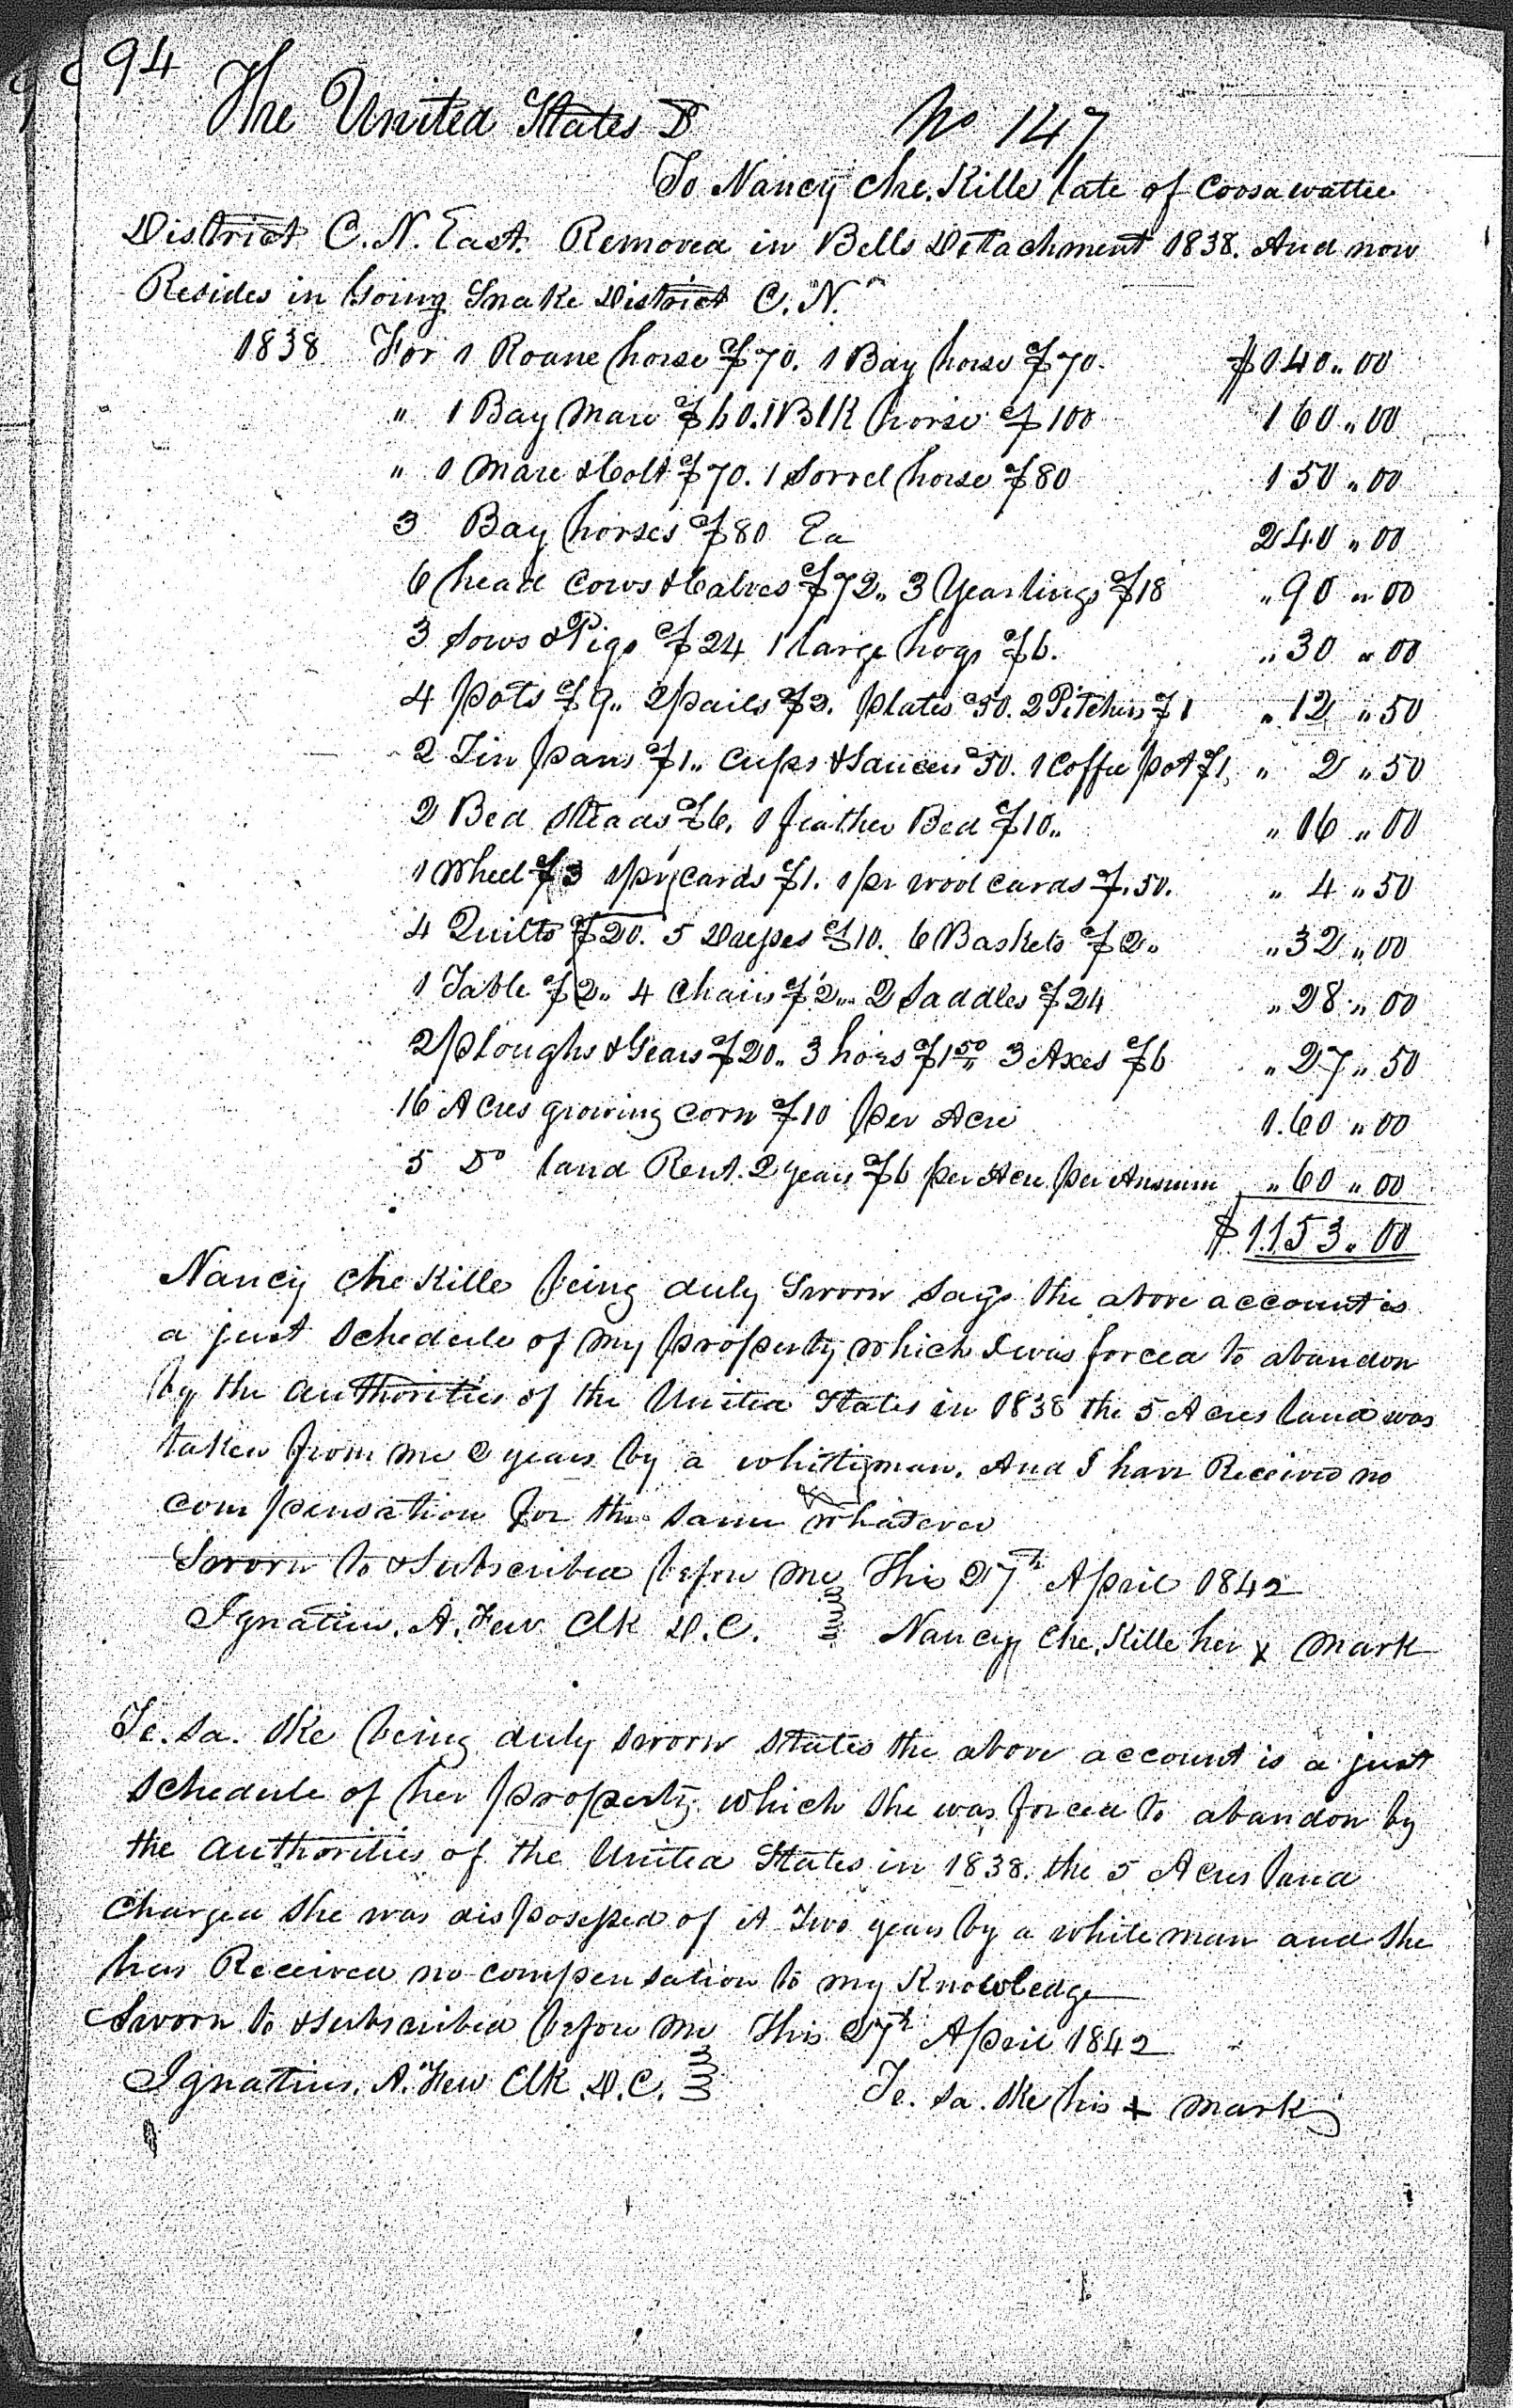 94
The United States Dr No 147
To Nancy Che.Kille late of Coosawattee
District C. N. East. Removed in Bells Detachment 1838. And now
Resides in Going Snake District C. N.
1838 For 1 Roane horse $70. 1 Bay horse $70. $140..00
" 1 Bay Mare $60. 1 Blk horse $100 160..00
" 1 Mare & Colt $70. 1 Sorrel horse $80 150..00
3 Bay horses $80 Ea 240..00
6 head Cows & Calves $72.. 3 Yearlings $18 " 90..00
3 Sows & Pigs $24 1 large hogs $6. " 30..00
4 pots $9.. 2 pails $2. plates 50. 2 Pitchers $1 " 12..50
2 Tin pans $1.. Cups & Saucers 50. 1 Coffee pot $1. " 2..50
2 Bed Steads $6. 1 feather Bed $10.. " 16..00
1 Wheel $3 1 pr cards $1. 1 pr wool cards $.50. " 4..50
4 Quilts $20. 5 Dresses $10. 6 Baskets $2.. " 32..00
1 Table $2.. 4 Chairs $2... 2 Saddles $24 " 28..00
2 ploughs & Gears $20.. 3 hoes $1 50 3 Axes $6 " 27..50
16 Acres growing corn $10 per Acre 160..00
5 Do land Rent. 2 years $6 per Acre per Annum " 60..00
$1153.00
Nancy Che Kille being duly Sworn Says the above account is
a just Schedule of my property which I was forced to abandon
by the authorities of the United States in 1838 the 5 Acres land was
taken from me 2 years by a white man. And I have Received no
compensation for the same whatever
Sworn to & Subscribed before me This 27th April 1842
Ignatius. A. Few Clk D. C. Nancy Che.Kille her x mark
Te. sa. ske being duly sworn States the above account is a just
Schedule of her property which she was forced to abandon by
the authorities of the United States in 1838. the 5 Acres land
Charged She was dispossessed of it Two years by a white man and She
has Received no compensation to my Knowledge
Sworn to & Subscribed before me This 27th April 1842
Ignatius. A. Few Clk. D. C. Te. sa. ske his + mark